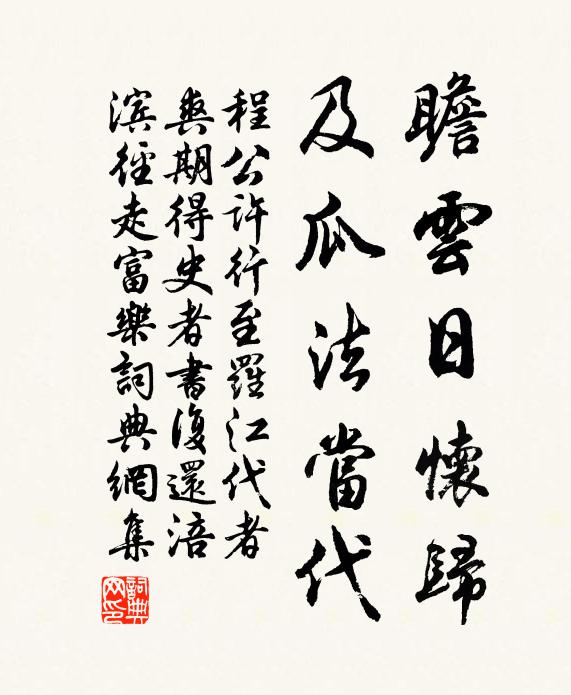 瞻雲日懷歸
及瓜法當代
程公許行至羅江代者
爽期得史者書復還涪
濱徑走富樂詞典網集
詞典网印